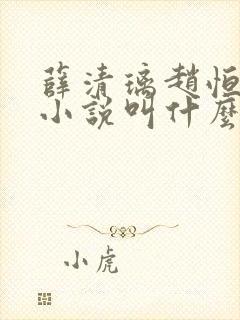 薛清璃趙恒
小說叫什麼
小虎